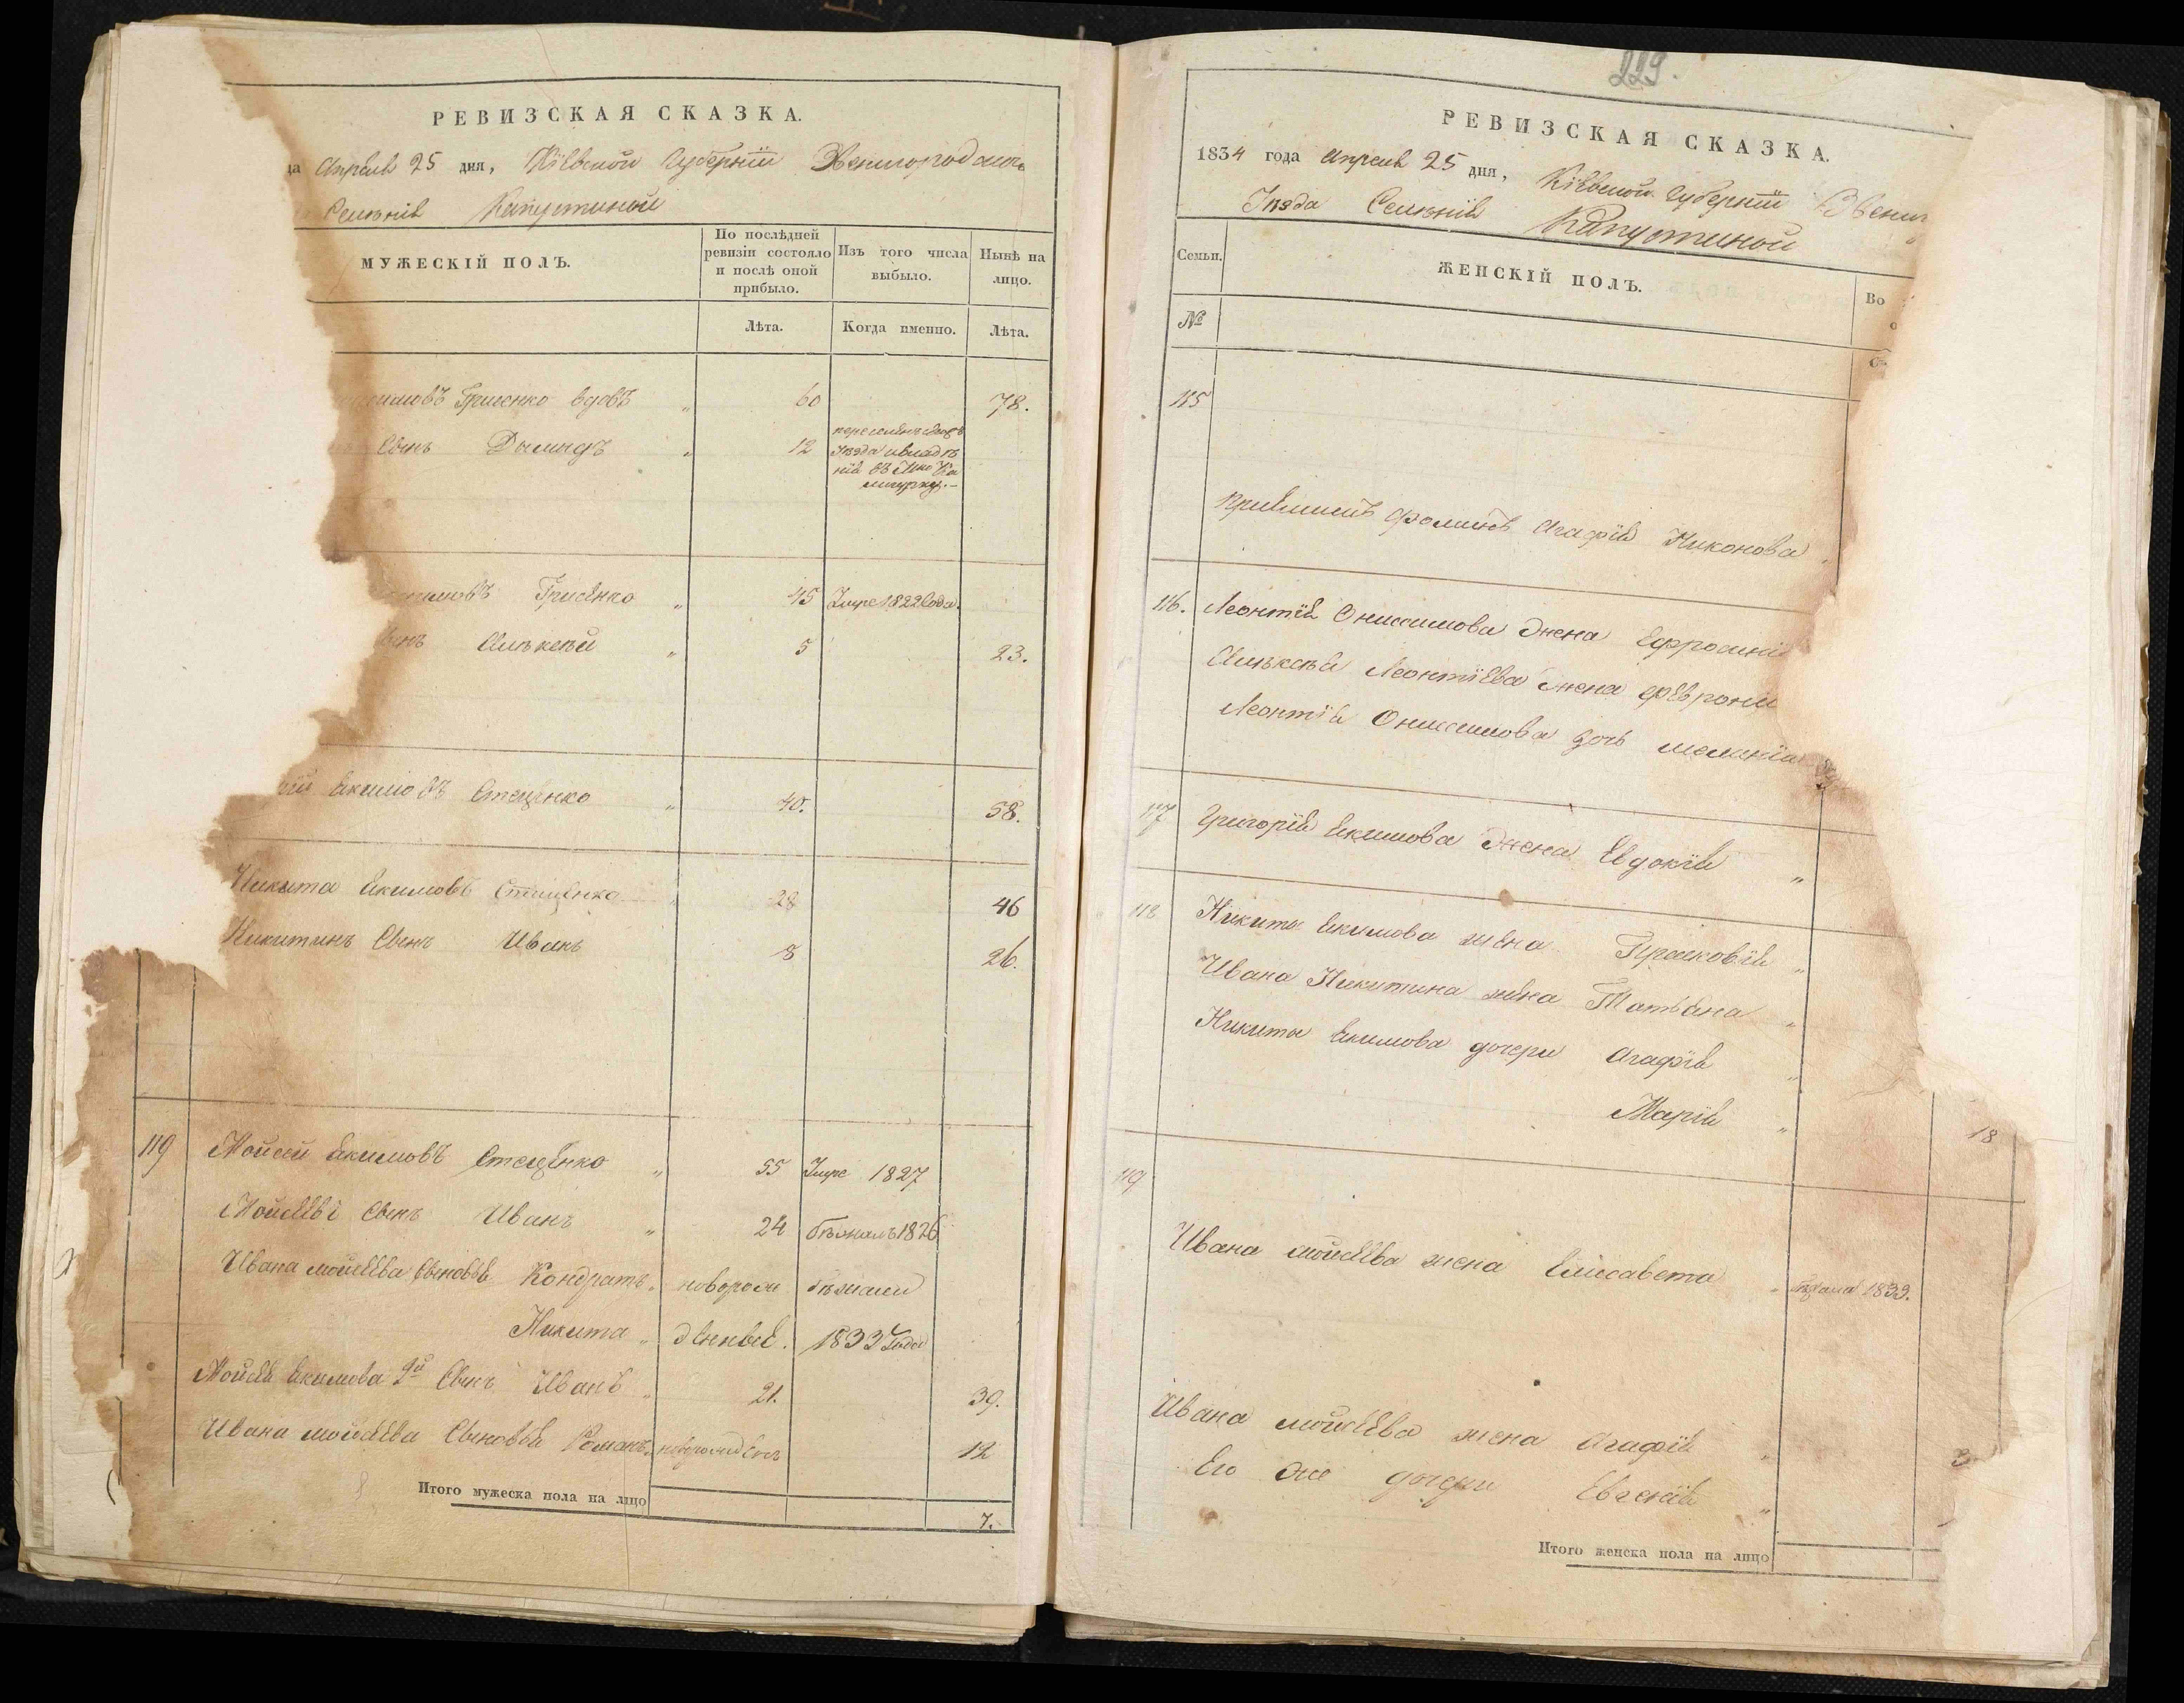 РЕВИЗСКАЯ СКАЗКА.
да Апреля 25 дня, Кіевской Губерніи Звенигородска
Селенія Капустиной
МУЖЕСКІЙ ПОЛЪ.
По послѣдней ревизіи состояло и послѣ оной прибыло.
Изъ того числа выбыло.
Нынѣ на лицо.
Лѣта.
Когда именно.
Лѣта.
симовъ Грисенко вдовъ " 60 78.
Сынъ Демидъ " 12
уезда
симовъ Грисенко " 45 Умре 1822 Года.
Сынъ Алѣксѣй " 5 23.
рій Екимовъ Стеценко " 40. 58.
Никита Екимовъ Стеценко 28 46
Никитинъ Сынъ Иванъ 8 26.
119 Мойсей Екимовъ Стеценко " 55 Умре 1827
Мойсеевъ Сынъ Иванъ " 24 бѣжалъ 1826
Ивана Мойсеева Сыновья Кондратъ " новорож бѣжали
Никита " денные. 1833 Года
Мойсея Екимова 2й Сынъ Иванъ " 21. 39.
Ивана Мойсеева Сыновья Романъ " новорожденъ 12
Итого мужеска пола на лицо
7.
229.
РЕВИЗСКАЯ СКАЗКА.
1834 года Апреля 25 дня, Кіевской Губерніи Звениг
Уезда Селенія Капустиной
Семьи.
ЖЕНСКІЙ ПОЛЪ.
Во
№
115
Агафія Никонова
116. Леонтія Онисимова Жена Ефросинія
Алѣксѣя Леонтіева жена Феврони
Леонтія Онисимова дочь Меланія
117 Григорія Екимова Жена Евдокія "
118 Никиты Екимова жена Прасковія "
Ивана Никитина жена Татьяна "
Никиты Екимова дочери Агафія "
Марія "
18
119
Ивана Мойсеева жена Елисавета " бѣжала 1833.
Ивана Мойсеева жена Агафія " 3
Его же дочери Евгенія "
Итого женска пола на лицо